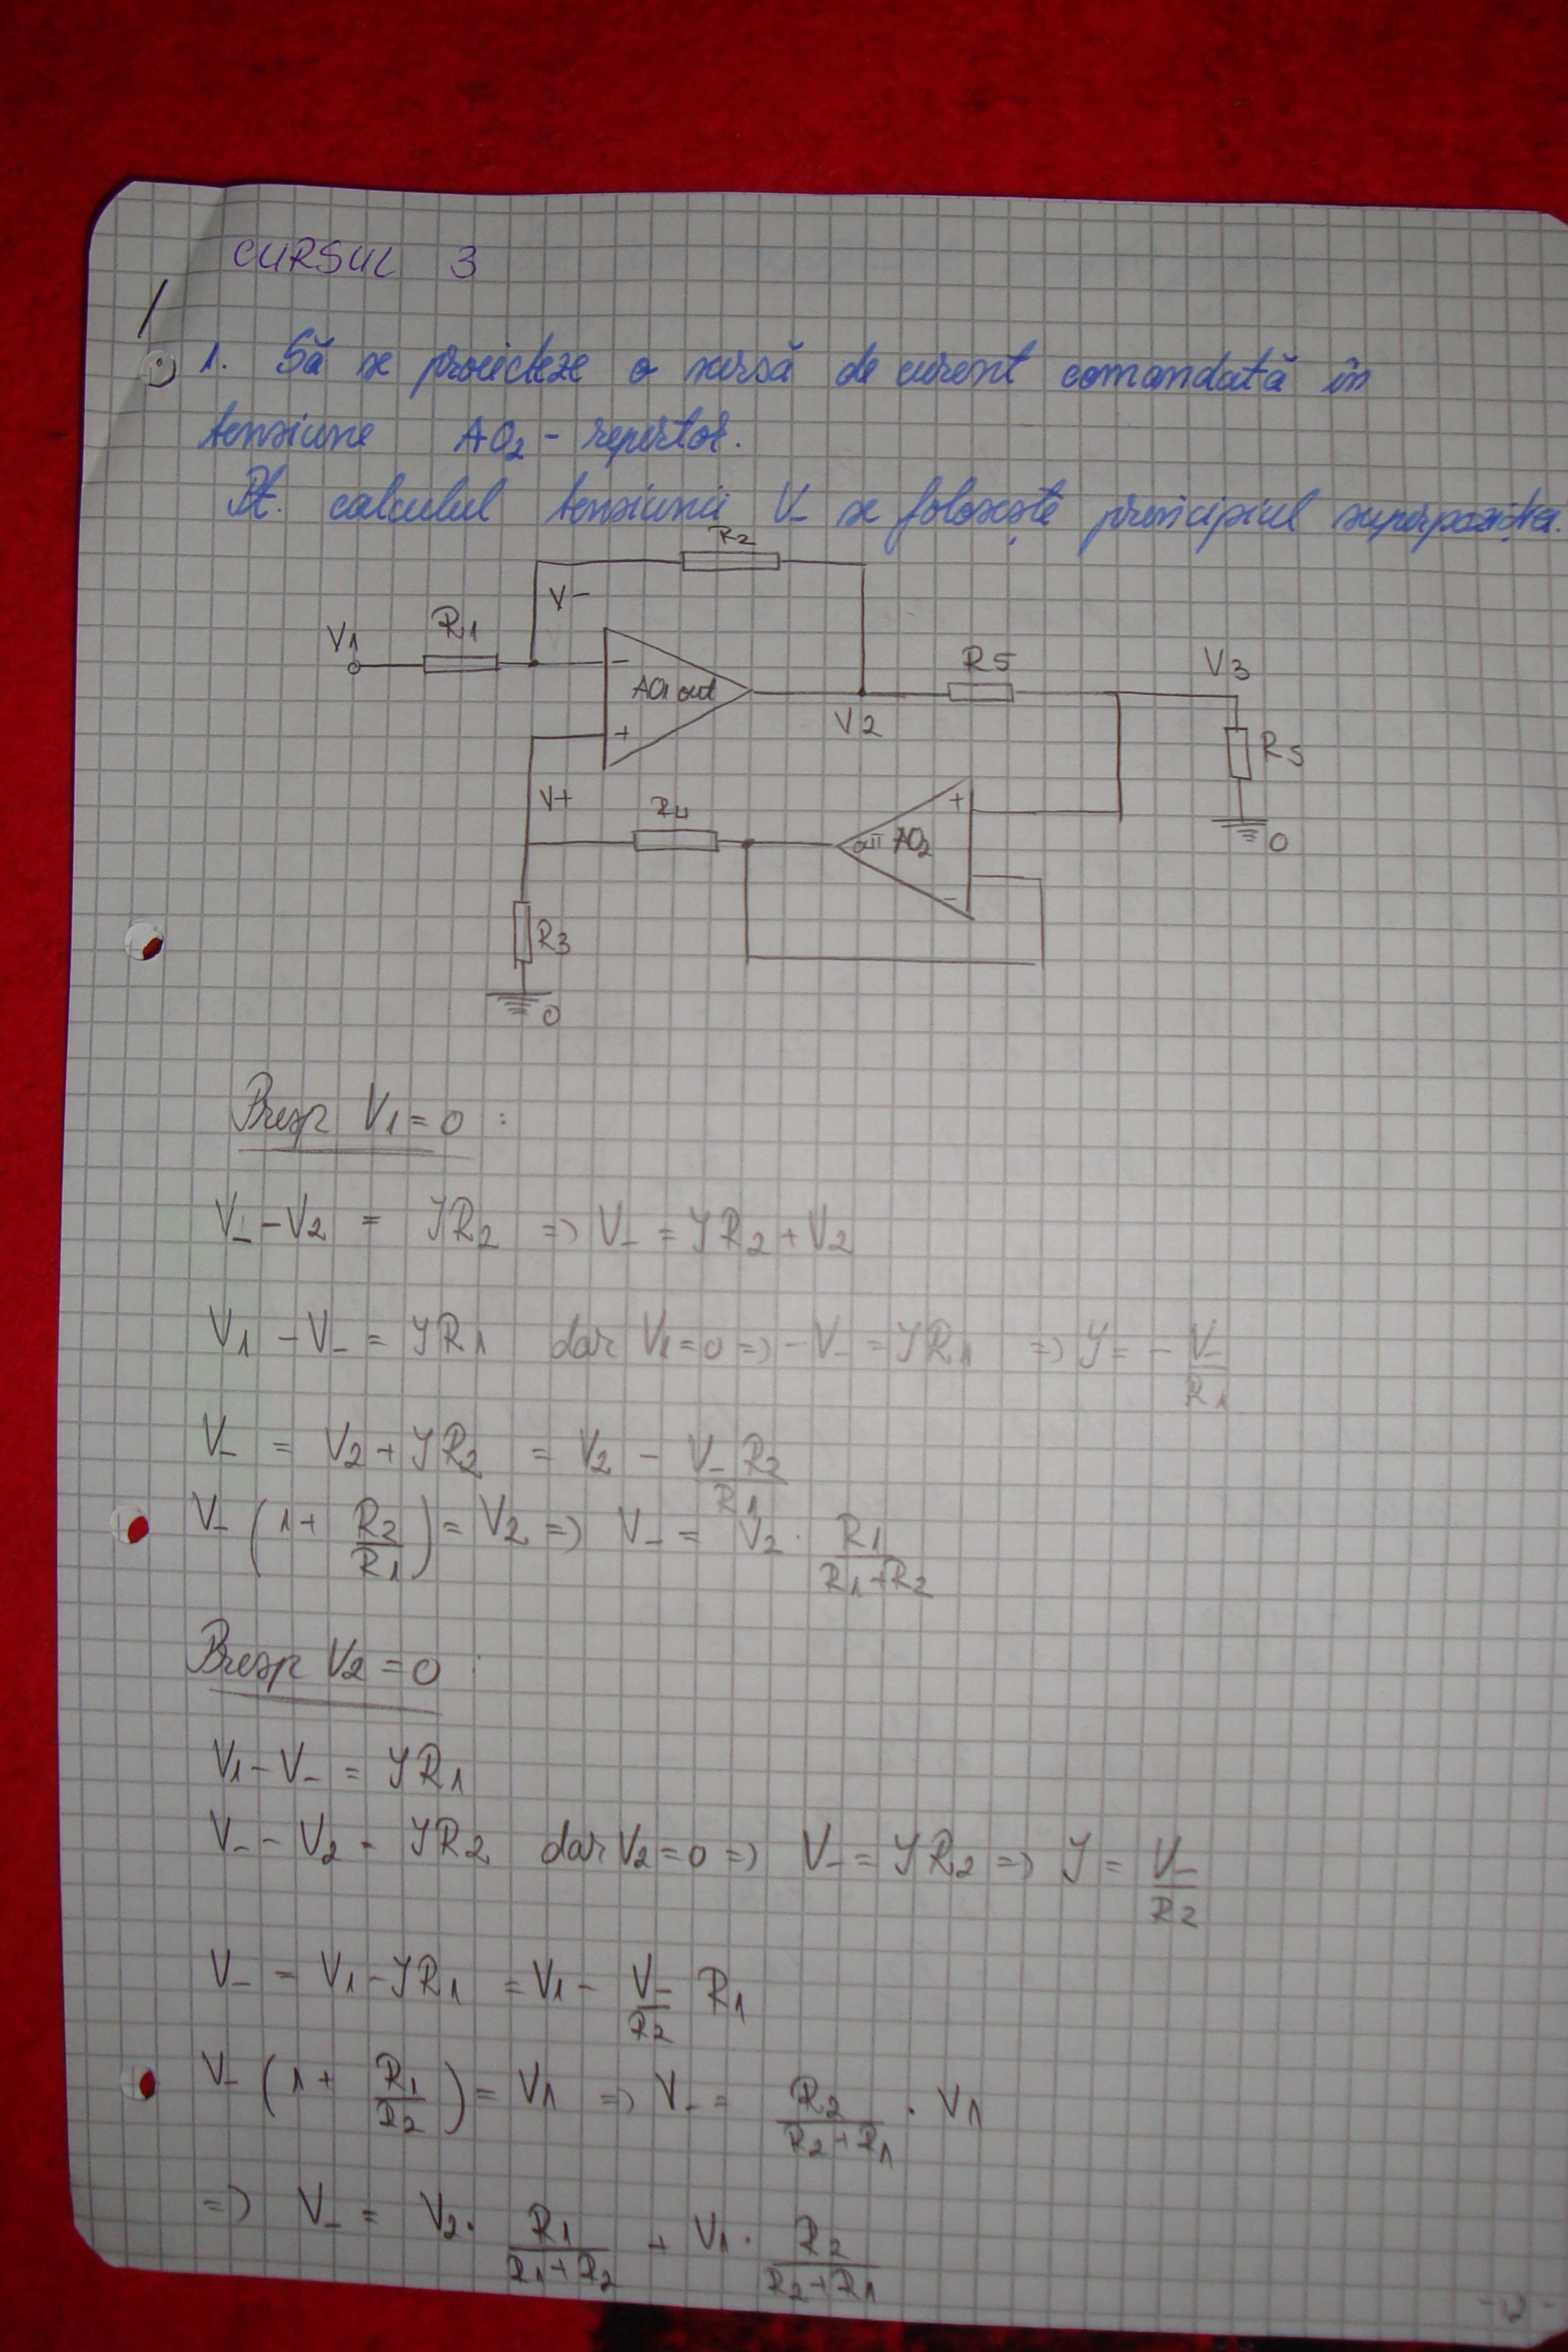 CURSUL 3
1. Să se proiecteze o sursă de curent comandată în
tensiune AO2 - repertor.
Pt. calculul tensiunii V_ se folosește principiul superpoziția.
R2
V-
V1
R1
- AO1 out
+
R5
V3
V2
R5
V+
R4
+
out AO2
-
0
R3
0
Presp V1=0 :
V_ - V2 = IR2 => V_ = IR2 + V2
V1 - V_ = IR1 dar V1=0 => -V_ = IR1 => I = - V_/R1
V_ = V2 + IR2 = V2 - V_ R2/R1
V_ (1 + R2/R1) = V2 => V_ = V2 · R1/(R1+R2)
Presp V2=0 :
V1 - V_ = IR1
V_ - V2 = IR2 dar V2=0 => V_ = IR2 => I = V_/R2
V_ = V1 - IR1 = V1 - V_/R2 R1
V_ (1 + R1/R2) = V1 => V_ = R2/(R2+R1) · V1
=> V_ = V2 · R1/(R1+R2) + V1 · R2/(R2+R1)
-12-